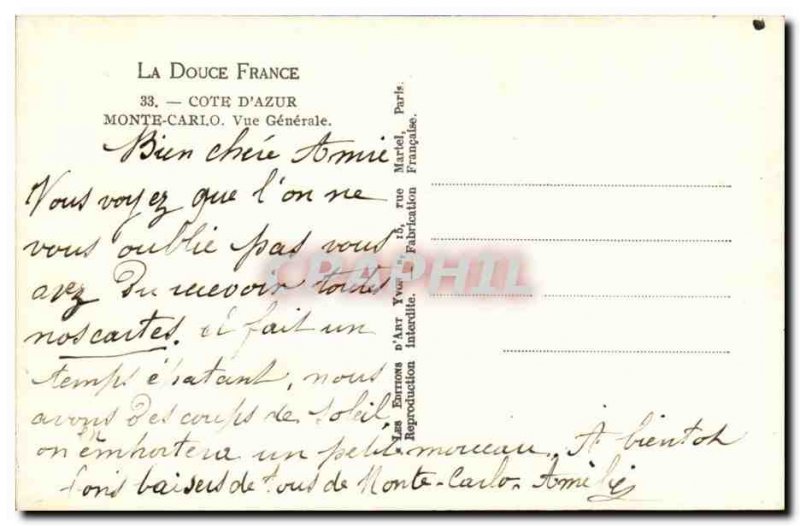 LA DOUCE FRANCE
33. — COTE D'AZUR
MONTE-CARLO. Vue Générale.
Bien chére Amie
Vous voyez que l'on ne
vous oublie pas vous
avez du recevoir toutes
nos cartes. il fait un
temps épatant, nous
avons des coups de soleil,
on emportera un petit morceau. A bientot
bons baisers de tous de Monte-Carlo. Amélie
LES EDITIONS D'ART YVON, 15, rue Martel, Paris.
Reproduction interdite. Fabrication Française.
CPAPHIL